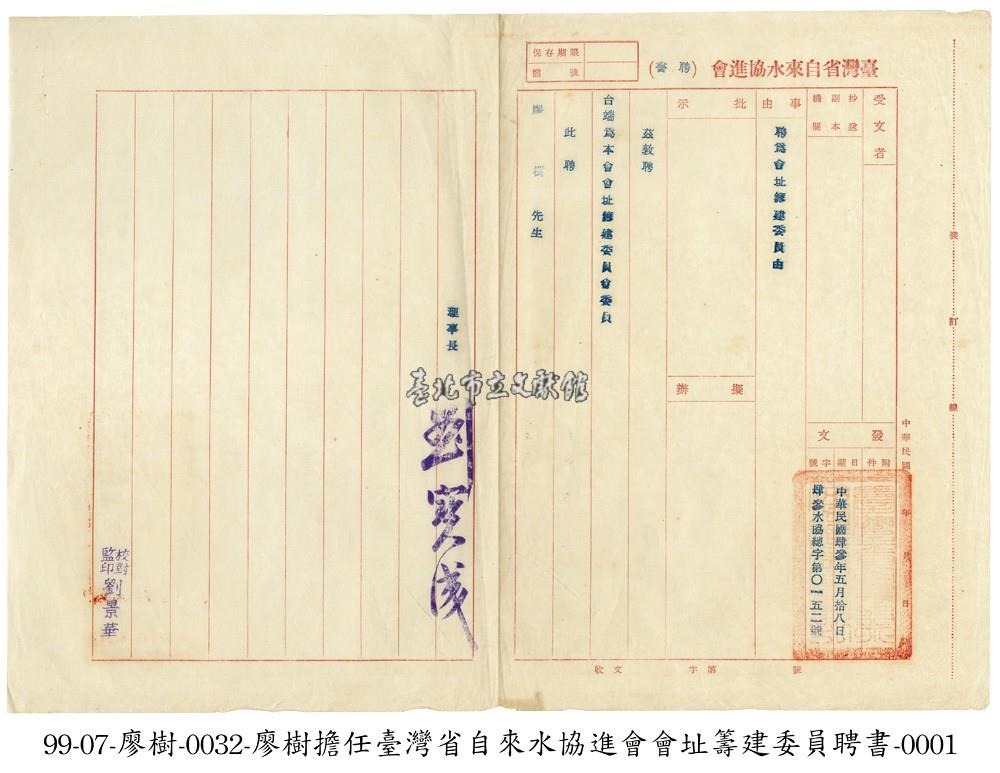 臺灣省自來水協進會(聘書)
保存期限
檔號
受文者
抄送
副本
機關
事由
聘為會址籌建委員由
批示
擬辦
發文
附件
日期
字號
中華民國 年 月 日
中華民國肆參年五月拾八日
肆參水協總字第〇一五二號
茲敦聘
台端為本會會址籌建委員會委員
此聘
廖樹先生
理事長
校對
監印
劉景華
裝訂線
收文 字第 號
臺北市立文獻館
99-07-廖樹-0032-廖樹擔任臺灣省自來水協進會會址籌建委員聘書-0001